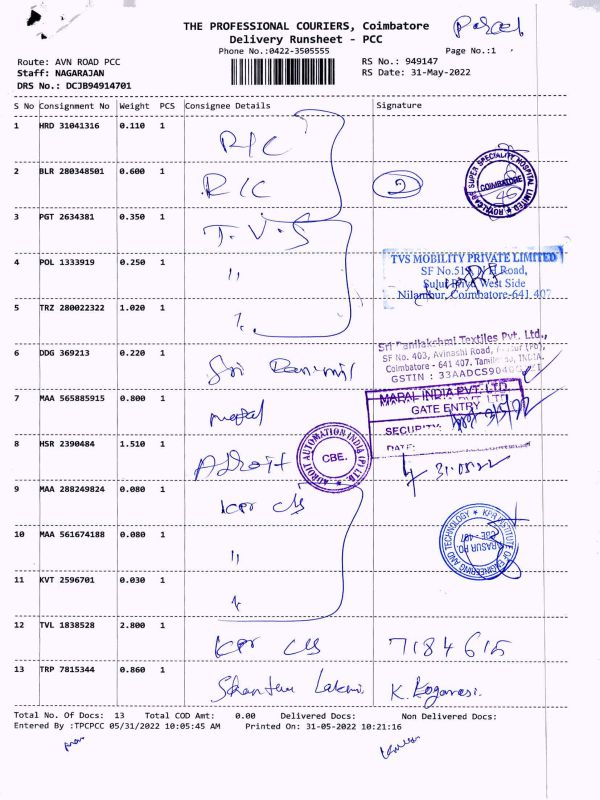 THE PROFESSIONAL COURIERS, Coimbatore
Parcel
Delivery Runsheet - PCC
Phone No.:0422-3505555
Page No.:1
Route: AVN ROAD PCC
RS No.: 949147
Staff: NAGARAJAN
RS Date: 31-May-2022
DRS No.: DCJB94914701
S No Consignment No Weight PCS Consignee Details Signature
1 HRD 31041316 0.110 1 R/C
2 BLR 280348501 0.600 1 R/C 2
SUPER SPECIALITY HOSPITAL LIMITED ★ ROYALCARE
COIMBATORE
3 PGT 2634381 0.350 1 T.V.S
4 POL 1333919 0.250 1 "
TVS MOBILITY PRIVATE LIMITED
Road,
West Side
Nilambur, Coimbatore-641 407
5 TRZ 280022322 1.020 1
6 DDG 369213 0.220 1 Sri
Textiles Pvt. Ltd.,
SF No. 403, Avinashi Road,
Coimbatore - 641 407.
GSTIN : 33AADCS9040
7 MAA 565885915 0.800 1
MAPAL INDIA PVT. LTD.
GATE ENTRY
SECURITY:
DATE:
8 HSR 2390484 1.510 1 Adroit
ADROIT AUTOMATION INDIA (P) LTD. ★
CBE.
31.05.22
9 MAA 288249824 0.080 1 KPR
10 MAA 561674188 0.080 1 "
KPR INSTITUTE OF ENGINEERING AND TECHNOLOGY ★
ARASUR PO
CBE - 407
11 KVT 2596701 0.030 1
12 TVL 1838528 2.800 1 KPR 7184615
13 TRP 7815344 0.860 1 K.
Total No. Of Docs: 13 Total COD Amt: 0.00 Delivered Docs: Non Delivered Docs:
Entered By :TPCPCC 05/31/2022 10:05:45 AM Printed On: 31-05-2022 10:21:16